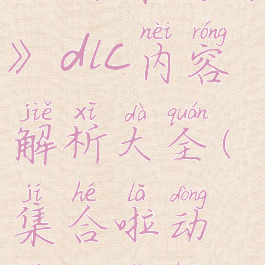 》dlc nèi róng 内容
jiě xī dà quán
解析大全(
jí hé lā dòng
集合啦动